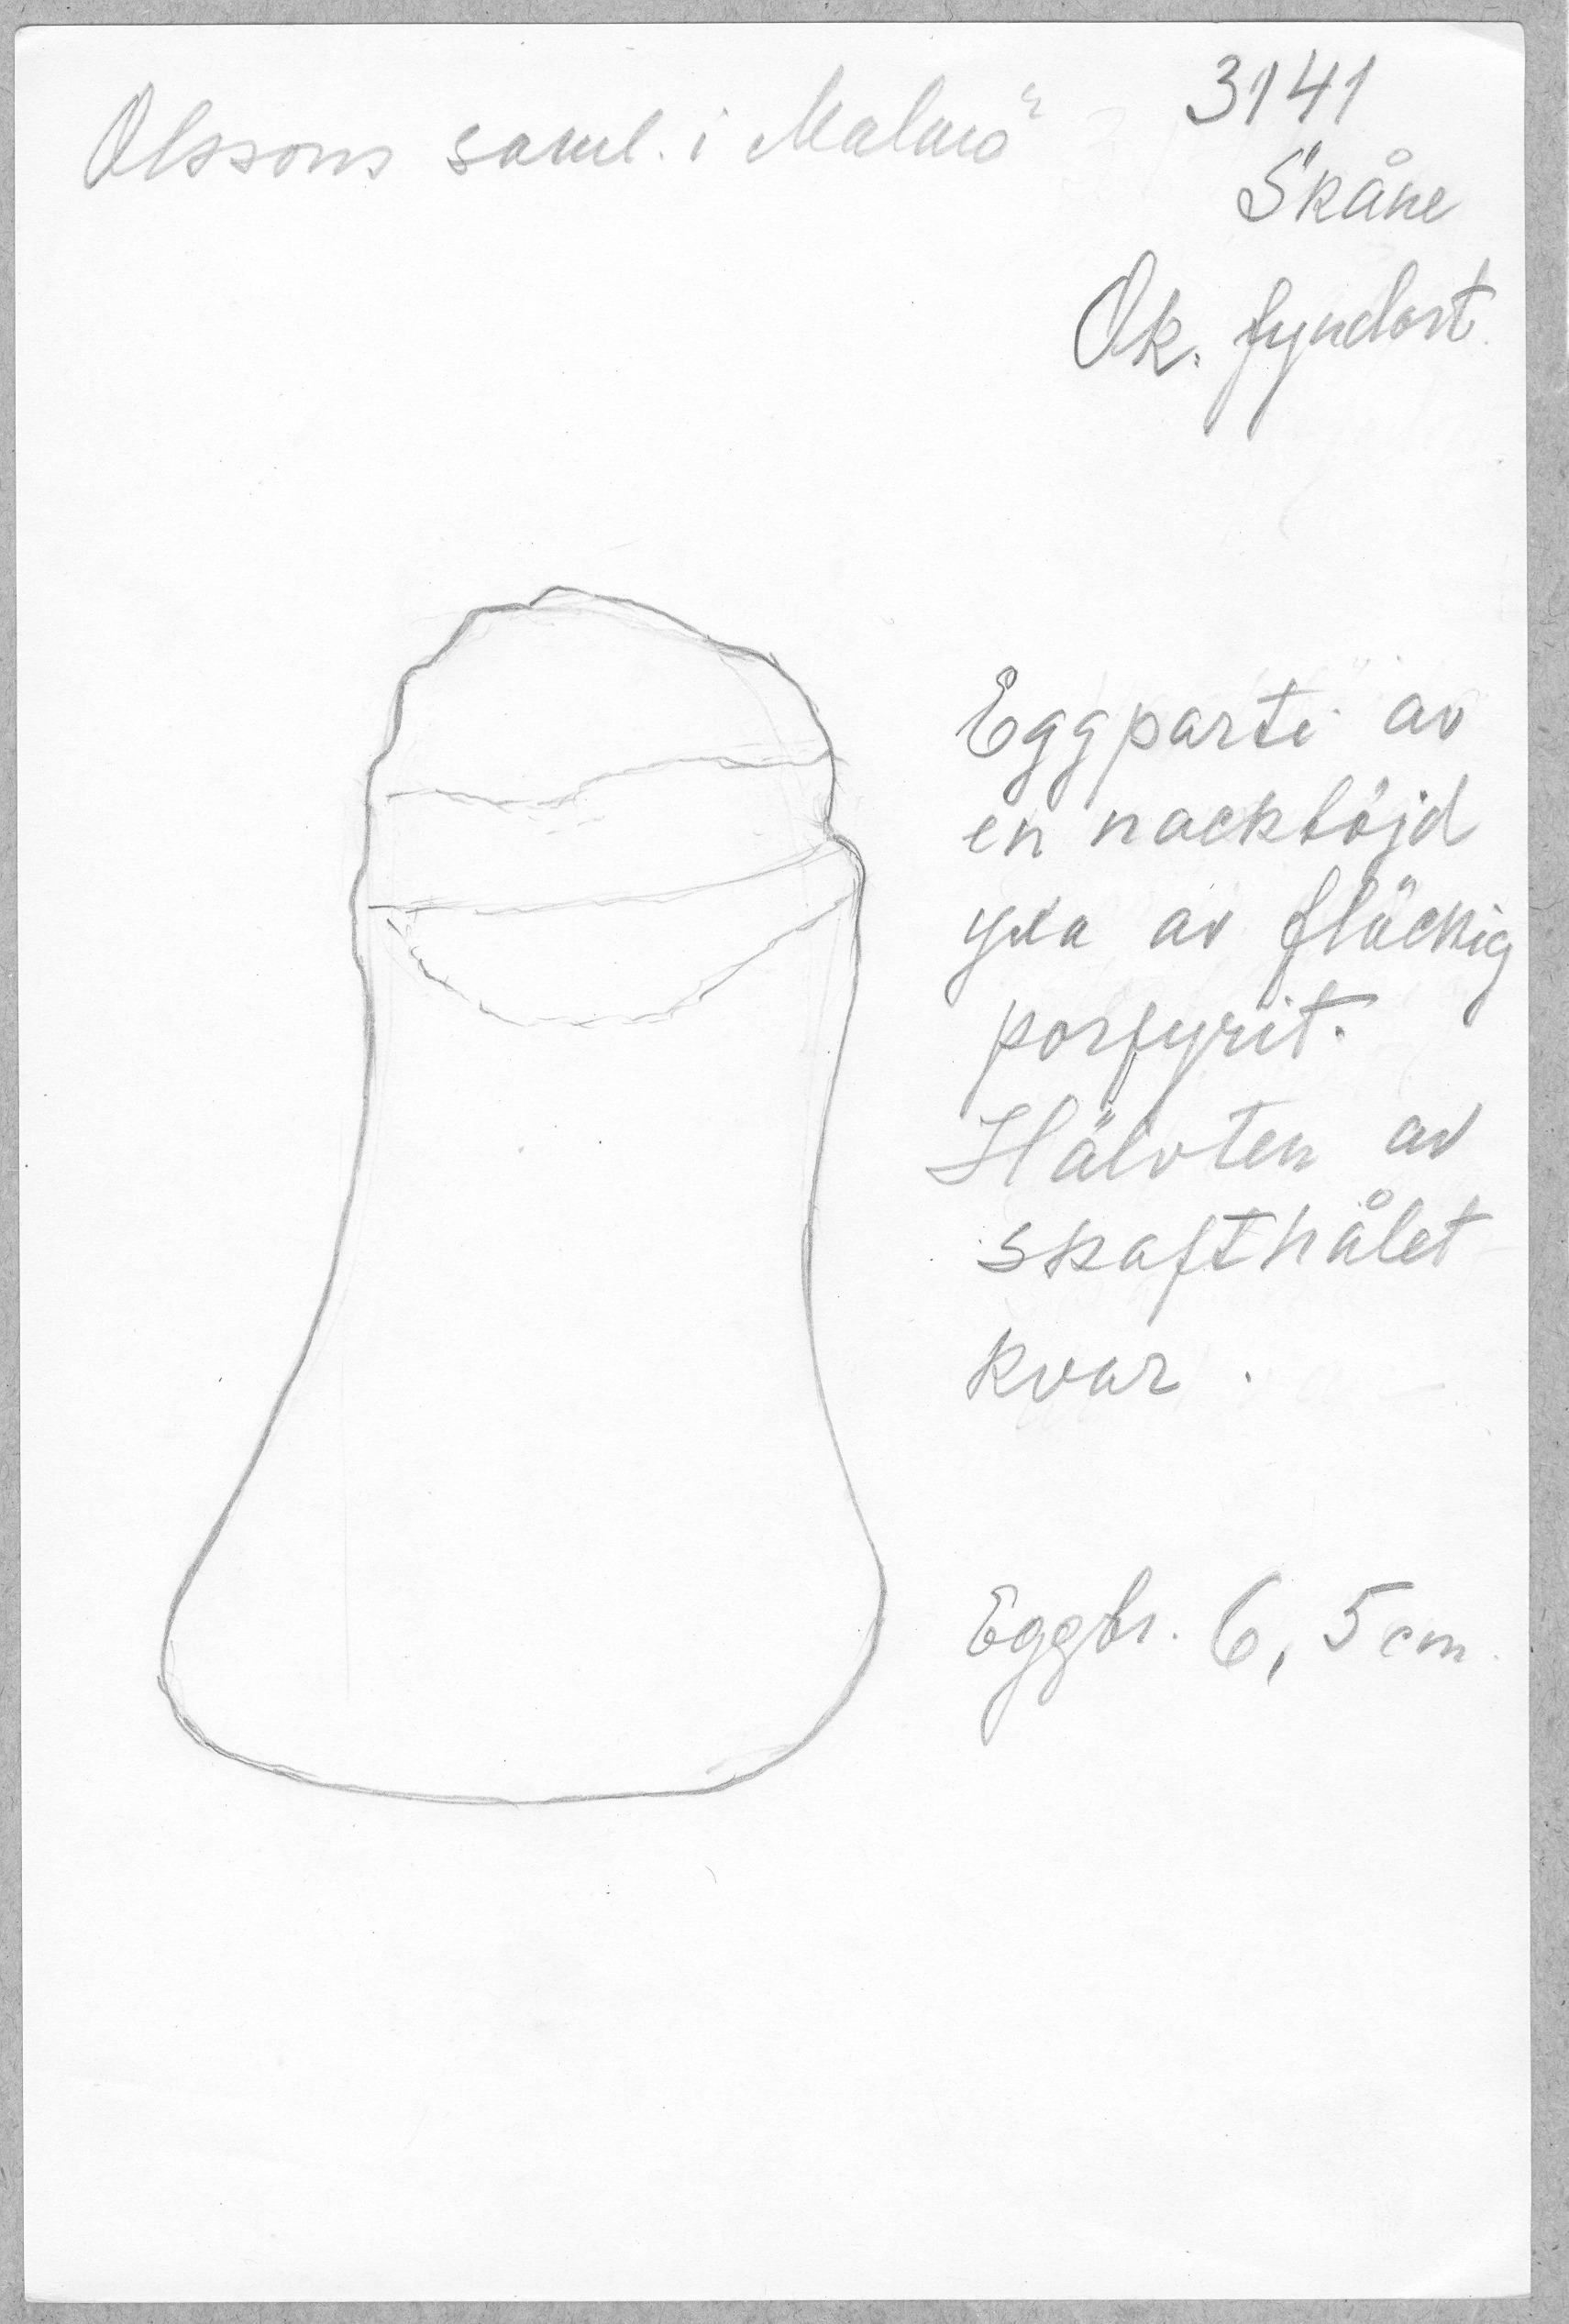 Olssons saml. i Malmö
3141
Skåne
Ok. fyndort.
Eggparti av
en nackböjd
yxa av fläckig
porfyrit.
Hälvten av
skafthålet
kvar.
Eggbr. 6,5 cm.